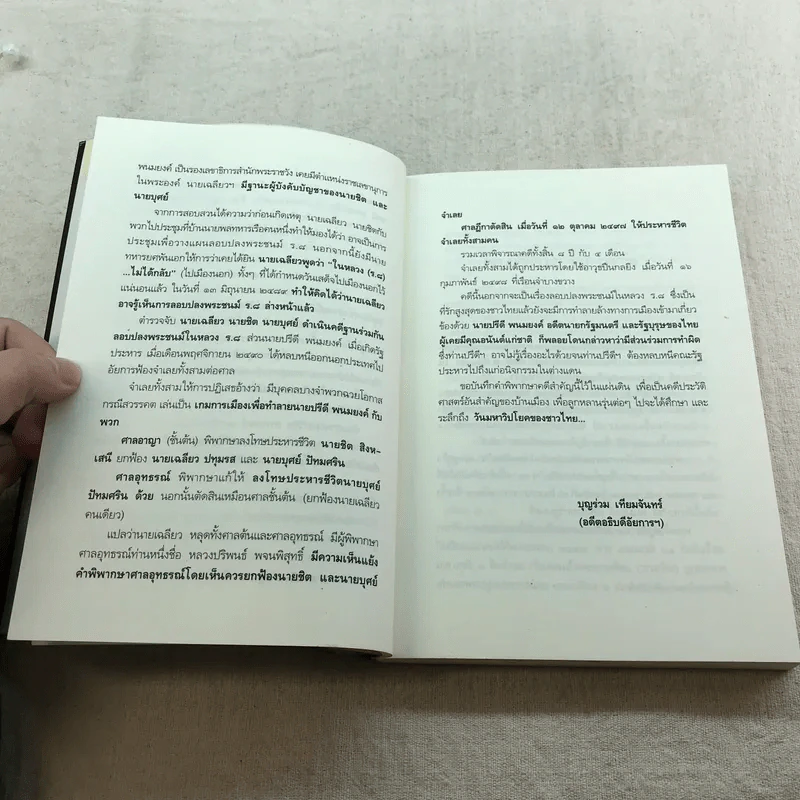 พนมยงค์ เป็นรองเลขาธิการสำนักพระราชวัง เคยมีตำแหน่งราชเลขานุการ
ในพระองค์ นายเฉลียวฯ มีฐานะผู้บังคับบัญชาของนายชิต และ
นายบุศย์
จากการสอบสวนได้ความว่าก่อนเกิดเหตุ นายเฉลียว นายชิตกับ
พวกไปประชุมที่บ้านนายพลทหารเรือคนหนึ่งทำให้มองได้ว่า อาจเป็นการ
ประชุมเพื่อวางแผนลอบปลงพระชนม์ ร.๘ นอกจากนี้ยังมีนาย
ทหารยศพันเอกให้การว่าเคยได้ยิน นายเฉลียวพูดว่า "ในหลวง (ร.๘)
...ไม่ได้กลับ" (ไปเมืองนอก) ทั้งๆ ที่ได้กำหนดวันเสด็จไปเมืองนอกไว้
แน่นอนแล้ว ในวันที่ ๑๓ มิถุนายน ๒๔๘๙ ทำให้คิดได้ว่านายเฉลียว
อาจรู้เห็นการลอบปลงพระชนม์ ร.๘ ล่างหน้าแล้ว
ตำรวจจับ นายเฉลียว นายชิต นายบุศย์ ดำเนินคดีฐานร่วมกัน
ลอบปลงพระชนม์ในหลวง ร.๘ ส่วนนายปรีดี พนมยงค์ เมื่อเกิดรัฐ
ประหาร เมื่อเดือนพฤศจิกายน ๒๔๙๐ ได้หลบหนีออกนอกประเทศไป
อัยการฟ้องจำเลยทั้งสามต่อศาล
จำเลยทั้งสามให้การปฏิเสธอ้างว่า มีบุคคลบางจำพวกฉวยโอกาส
กรณีสวรรคต เล่นเป็น เกมการเมืองเพื่อทำลายนายปรีดี พนมยงค์ กับ
พวก
ศาลอาญา (ชั้นต้น) พิพากษาลงโทษประหารชีวิต นายชิต สิงห-
เสนี ยกฟ้อง นายเฉลียว ปทุมรส และ นายบุศย์ ปัทมศริน
ศาลอุทธรณ์ พิพากษาแก้ให้ ลงโทษประหารชีวิตนายบุศย์
ปัทมศริน ด้วย นอกนั้นตัดสินเหมือนศาลชั้นต้น (ยกฟ้องนายเฉลียว
คนเดียว)
แปลว่านายเฉลียว หลุดทั้งศาลต้นและศาลอุทธรณ์ มีผู้พิพากษา
ศาลอุทธรณ์ท่านหนึ่งชื่อ หลวงปริพนธ์ พจนพิสุทธิ์ มีความเห็นแย้ง
คำพิพากษาศาลอุทธรณ์โดยเห็นควรยกฟ้องนายชิต และนายบุศย์
จำเลย
ศาลฎีกาตัดสิน เมื่อวันที่ ๑๒ ตุลาคม ๒๔๙๗ ให้ประหารชีวิต
จำเลยทั้งสามคน
รวมเวลาพิจารณคดีทั้งสิ้น ๘ ปี กับ ๔ เดือน
จำเลยทั้งสามได้ถูกประหารโดยใช้อาวุธปืนกลยิง เมื่อวันที่ ๑๖
กุมภาพันธ์ ๒๔๙๘ ที่เรือนจำบางขวาง
คดีนี้นอกจากจะเป็นเรื่องลอบปลงพระชนม์ในหลวง ร.๘ ซึ่งเป็น
ที่รักสูงสุดของชาวไทยแล้วยังจะมีการทำลายล้างทางการเมืองเข้ามาเกี่ยว
ข้องด้วย นายปรีดี พนมยงค์ อดีตนายกรัฐมนตรี และรัฐบุรุษของไทย
ผู้เคยมีคุณอนันต์แก่ชาติ ก็พลอยโดนกล่าวหาว่ามีส่วนร่วมการทำผิด
ซึ่งท่านปรีดีฯ อาจไม่รู้เรื่องอะไรด้วยจนท่านปรีดีฯ ต้องหลบหนีคณะรัฐ
ประหารไปถึงแก่อนิจกรรมในต่างแดน
ขอบันทึกคำพิพากษาคดีสำคัญนี้ไว้ในแผ่นดิน เพื่อเป็นคดีประวัติ
ศาสตร์อันสำคัญของบ้านเมือง เพื่อลูกหลานรุ่นต่อๆ ไปจะได้ศึกษา และ
ระลึกถึง วันมหาวิปโยคของชาวไทย...
บุญร่วม เทียมจันทร์
(อดีตอธิบดีอัยการฯ)